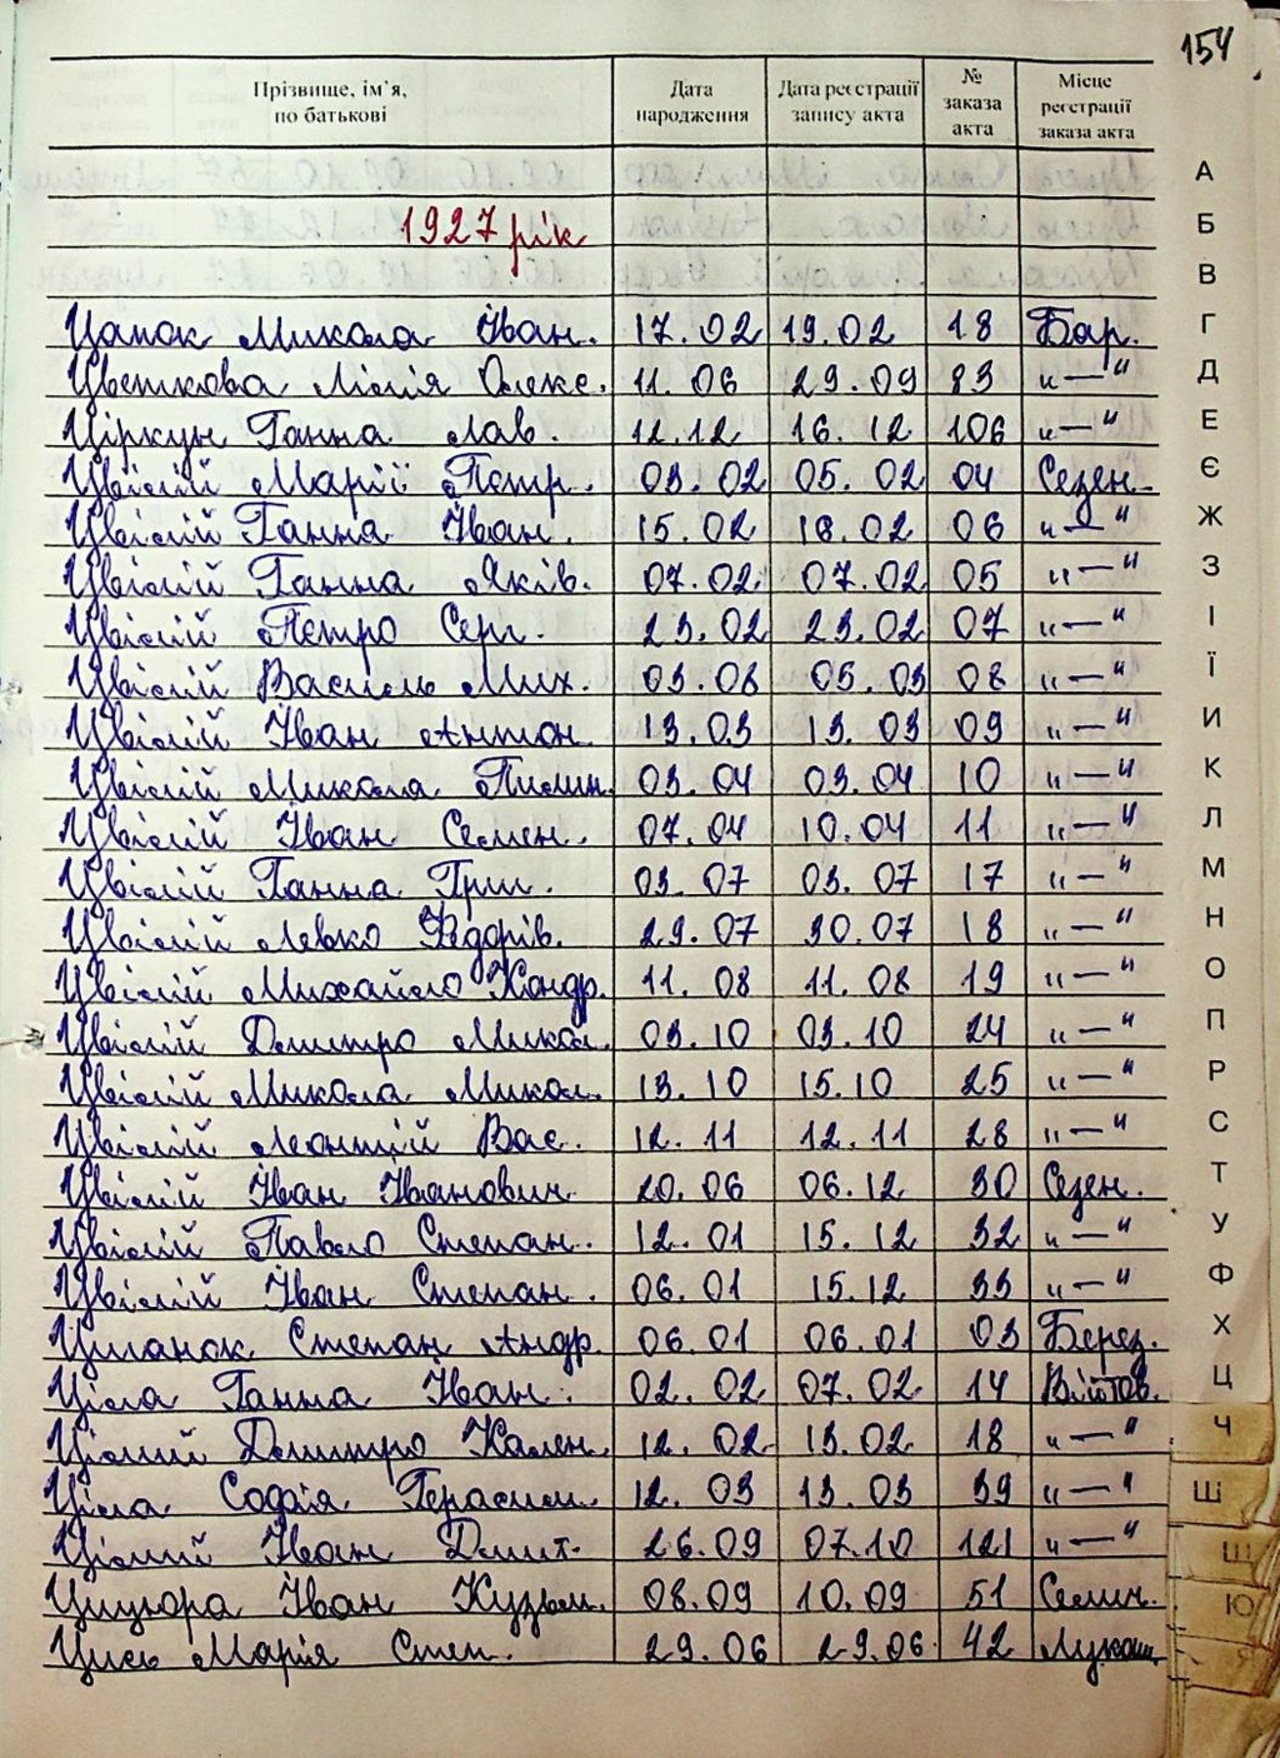 154
Прізвище, ім'я, по батькові Дата народження Дата реєстрації запису акта № заказа акта Місце реєстрації заказа акта
А
Б
1927 рік
В
Цапок Микола Іван. 17.02 19.02 18 Бар. Г
Цвєткова Лілія Олекс. 11.06 29.09 83 "—" Д
Ціркун Ганна Лав. 12.12 16.12 106 "—" Е
Цвілій Марії Петр. 03.02 05.02 04 Сезен. Є
Цвілій Ганна Іван. 15.02 18.02 06 "—" Ж
Цвілій Ганна Яків. 07.02 07.02 05 "—" З
Цвілій Петро Серг. 23.02 23.02 07 "—" І
Цвілій Василь Мих. 03.03 05.03 08 "—" Ї
Цвілій Іван Антон. 13.03 13.03 09 "—" И
Цвілій Микола Пилип. 03.04 03.04 10 "—" К
Цвілій Іван Семен. 07.04 10.04 11 "—" Л
Цвілій Ганна Григ. 03.07 03.07 17 "—" М
Цвілій Левко Федорів. 29.07 30.07 18 "—" Н
Цвілій Михайло Кондр. 11.08 11.08 19 "—" О
Цвілій Дмитро Микол. 03.10 03.10 24 "—" П
Цвілій Микола Микол. 13.10 15.10 25 "—" Р
Цвілій Леонтій Вас. 12.11 12.11 28 "—" С
Цвілій Іван Іванович 20.06 06.12 30 Сезен. Т
Цвілій Павло Степан. 12.01 15.12 32 "—" У
Цвілій Іван Степан. 06.01 15.12 33 "—" Ф
Циганок Степан Андр. 06.01 06.01 03 Берез. Х
Ціла Ганна Іван. 02.02 07.02 14 Війтов. Ц
Цілий Дмитро Кален. 12.02 13.02 18 "—" Ч
Ціла Софія Герасим. 12.03 13.03 39 "—" Ш
Цілий Іван Дмит. 26.09 07.10 121 "—" Щ
Цицюра Іван Кузьм. 08.09 10.09 51 Семич. Ю
Цись Марія Степ. 29.06 29.06 42 Лукаш. Я